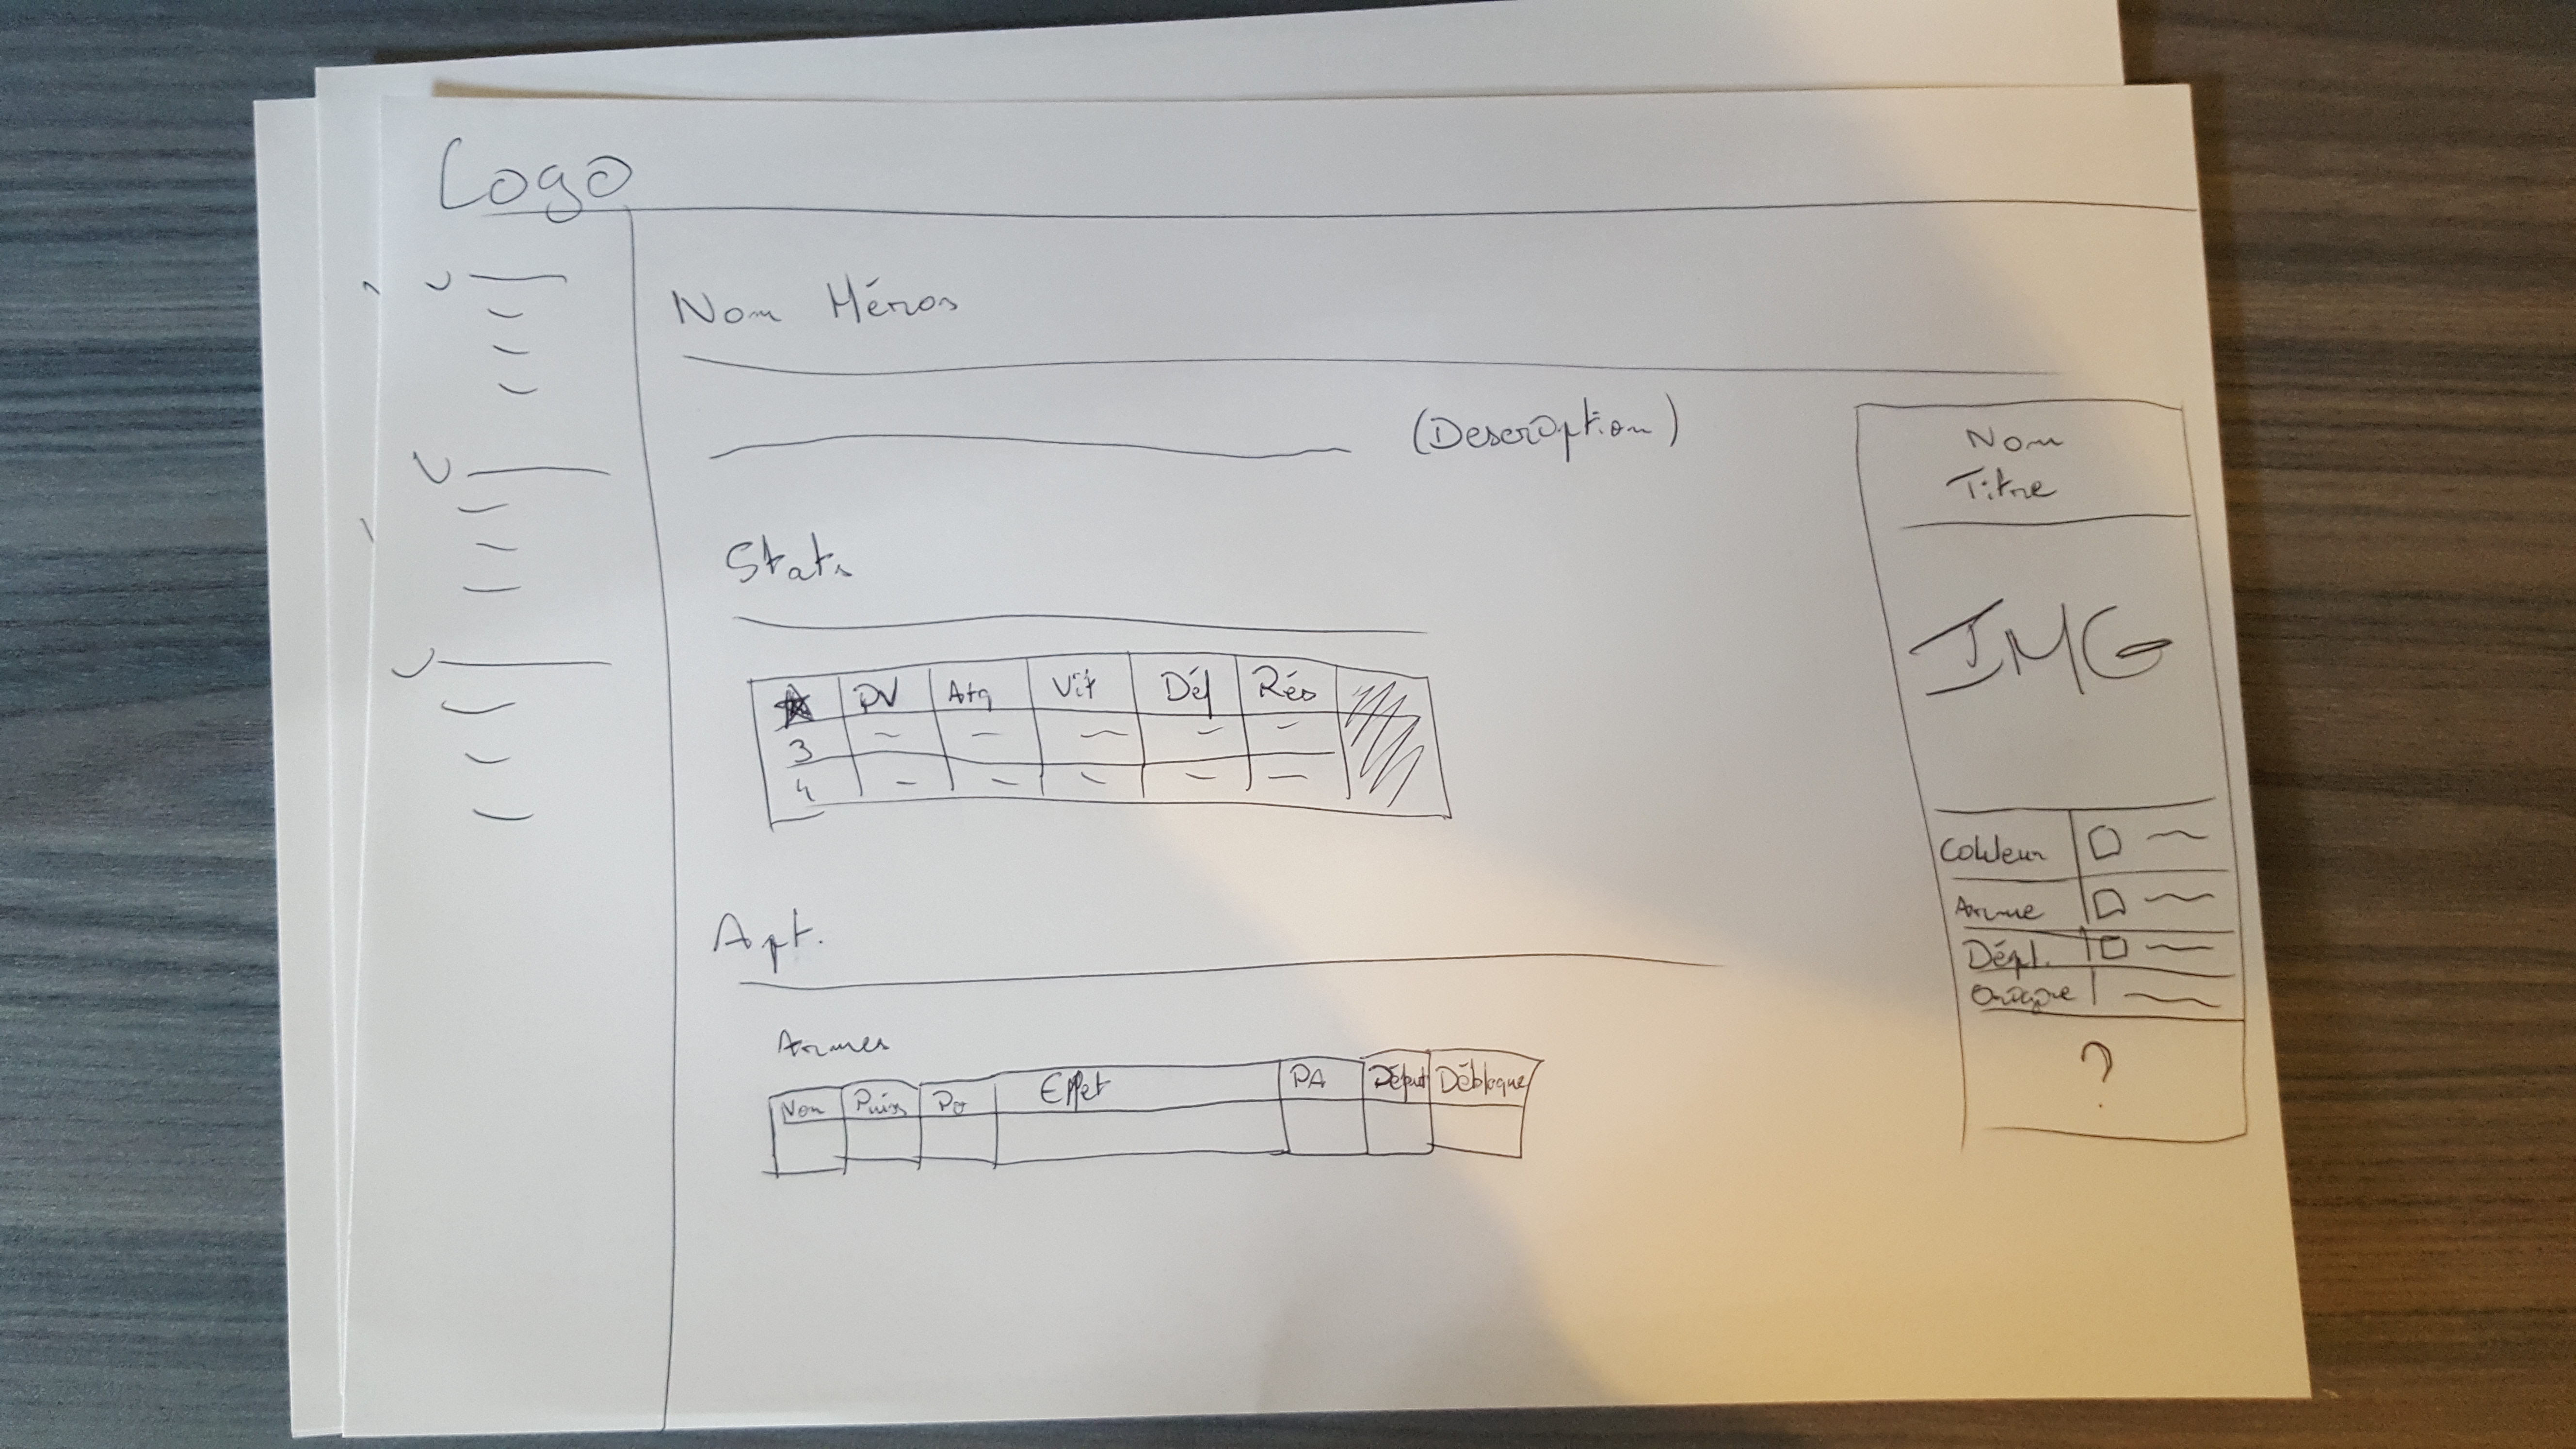 Logo
Nom Héros
(Description)
Stats
★ PV Atq Vit Déf Rés
3
4
Apt.
Armes
Nom Puiss Po Effet PA Début Débloque
Nom
Titre
IMG
Couleur
Arme
Dépl.
Origine
?